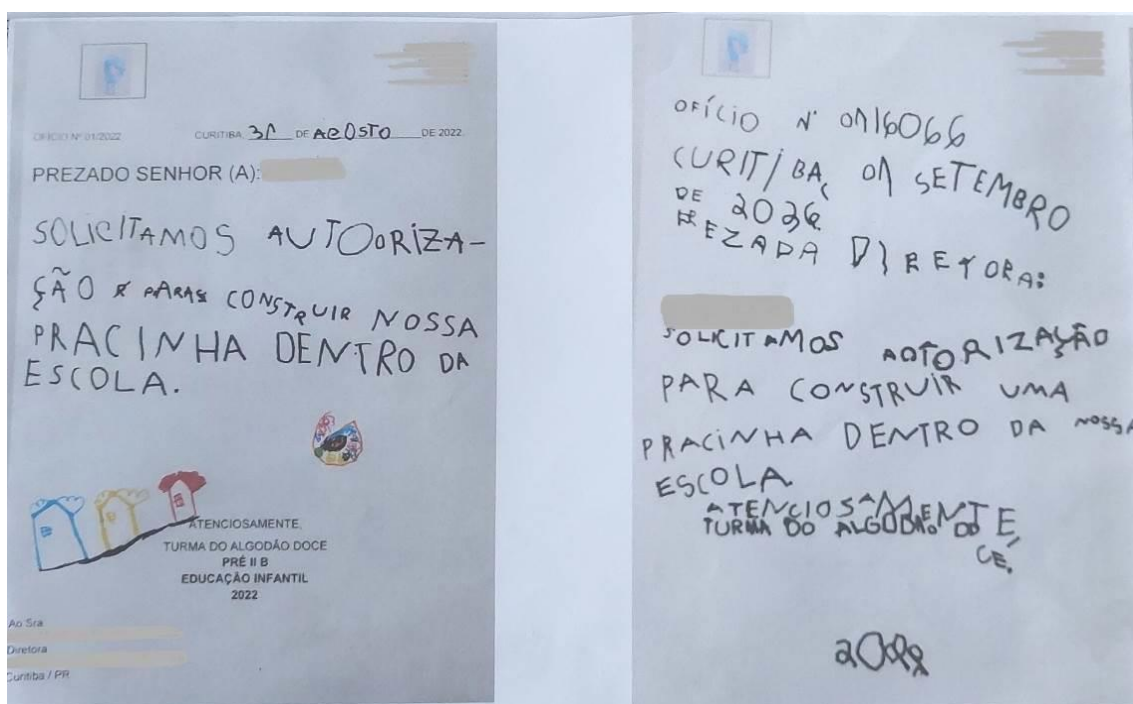 OFÍCIO Nº 01/2022 CURITIBA, 31 DE AGOSTO DE 2022
PREZADO SENHOR (A):
SOLICITAMOS AUTOORIZA-
ÇÃO PARA CONSTRUIR NOSSA
PRACINHA DENTRO DA
ESCOLA.
ATENCIOSAMENTE,
TURMA DO ALGODÃO DOCE
PRÉ II B
EDUCAÇÃO INFANTIL
2022
Ao Sra
Diretora
Curitiba / PR
OFÍCIO Nº
CURITIBA, 01 SETEMBRO
DE
REZADA DIRETORA:
SOLICITAMOS AOTORIZAÇÃO
PARA CONSTRUIR UMA
PRACINHA DENTRO DA NOSSA
ESCOLA
ATENCIOSAMENTE,
TURMA DO ALGODÃO DO
CE.